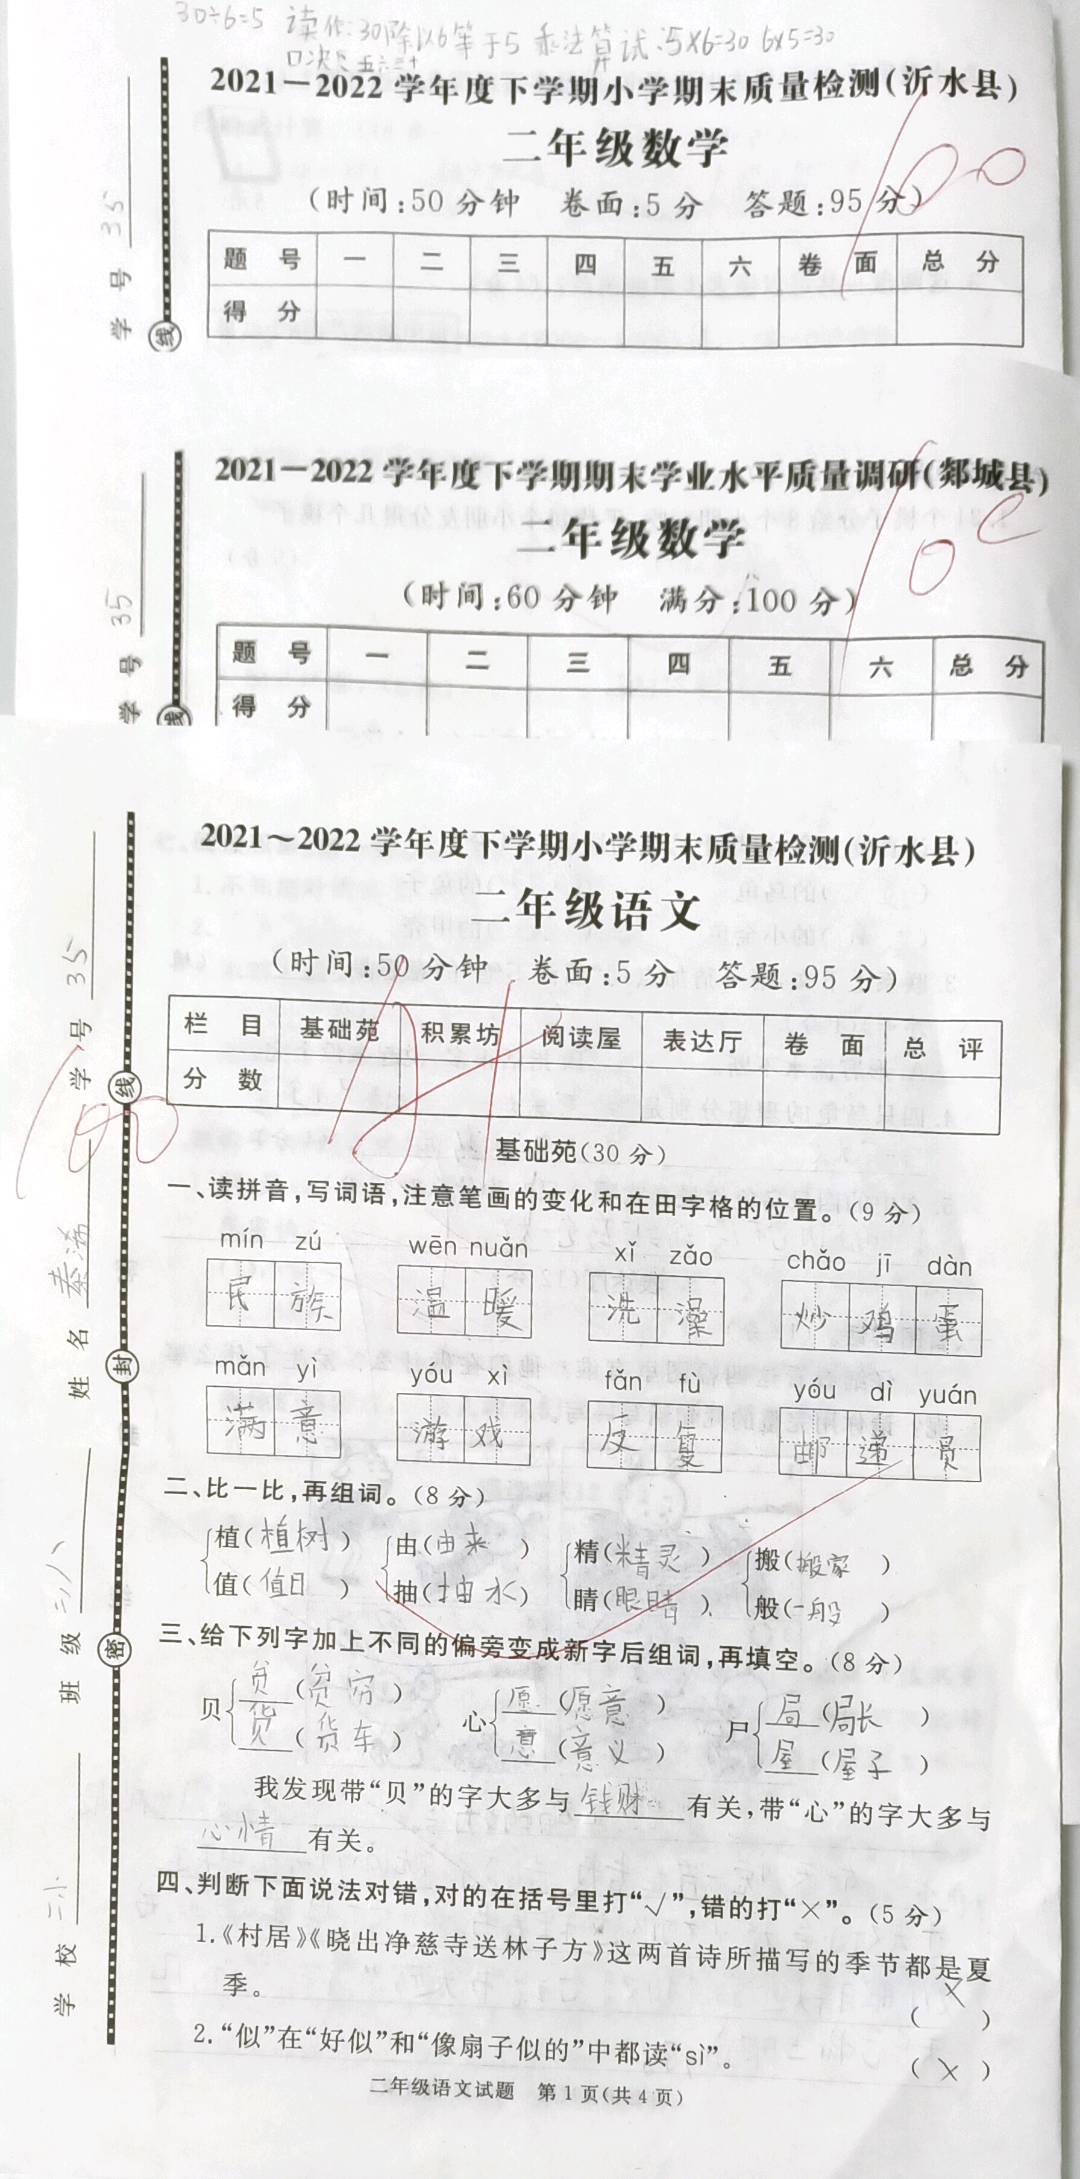 30÷6=5 读作:30除以6等于5 乘法算试:5×6=30 6×5=30
口决: 五六三十
2021—2022学年度下学期小学期末质量检测(沂水县)
二年级数学
(时间:50分钟 卷面:5分 答题:95分)
100
题号 一 二 三 四 五 六 卷面 总分
得分
学号 35
线
2021—2022学年度下学期期末学业水平质量调研(郯城县)
二年级数学
(时间:60分钟 满分:100分)
100
题号 一 二 三 四 五 六 总分
得分
学号 35
线
2021~2022学年度下学期小学期末质量检测(沂水县)
二年级语文
(时间:50分钟 卷面:5分 答题:95分)
栏目 基础苑 积累坊 阅读屋 表达厅 卷面 总评
分数
100
学号 35
姓名 秦满
班级 二八
学校 二小
线
封
密
基础苑(30分)
一、读拼音,写词语,注意笔画的变化和在田字格的位置。(9分)
mín zú wēn nuǎn xǐ zǎo chǎo jī dàn
民族 温暖 洗澡 炒鸡蛋
mǎn yì yóu xì fǎn fù yóu dì yuán
满意 游戏 反复 邮递员
二、比一比,再组词。(8分)
植(植树) 由(由来) 精(精灵) 搬(搬家)
值(值日) 抽(抽水) 睛(眼睛) 般(一般)
三、给下列字加上不同的偏旁变成新字后组词,再填空。(8分)
贝 贫(贫穷) 心 愿(愿意) 尸 局(局长)
货(货车) 意(意义) 屋(屋子)
我发现带“贝”的字大多与钱财有关,带“心”的字大多与
心情有关。
四、判断下面说法对错,对的在括号里打“√”,错的打“×”。(5分)
1.《村居》《晓出净慈寺送林子方》这两首诗所描写的季节都是夏
季。 (×)
2.“似”在“好似”和“像扇子似的”中都读“sì”。 (×)
二年级语文试题 第1页(共4页)